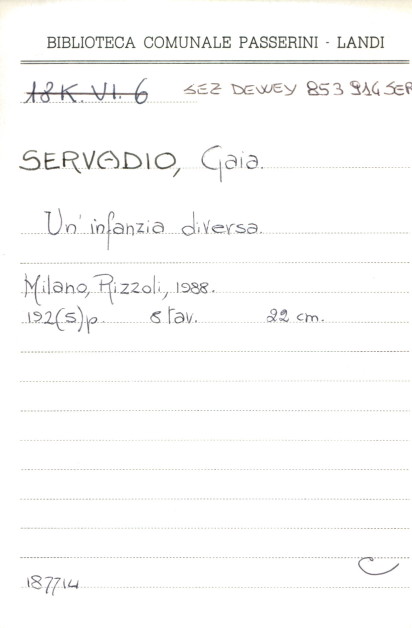 BIBLIOTECA COMUNALE PASSERINI - LANDI
18K. VI. 6 SEZ DEWEY 853 914 SER
SERVADIO, Gaia.
Un' infanzia diversa.
Milano, Rizzoli, 1988.
192(5)p. 8 tav. 22 cm.
C
187714